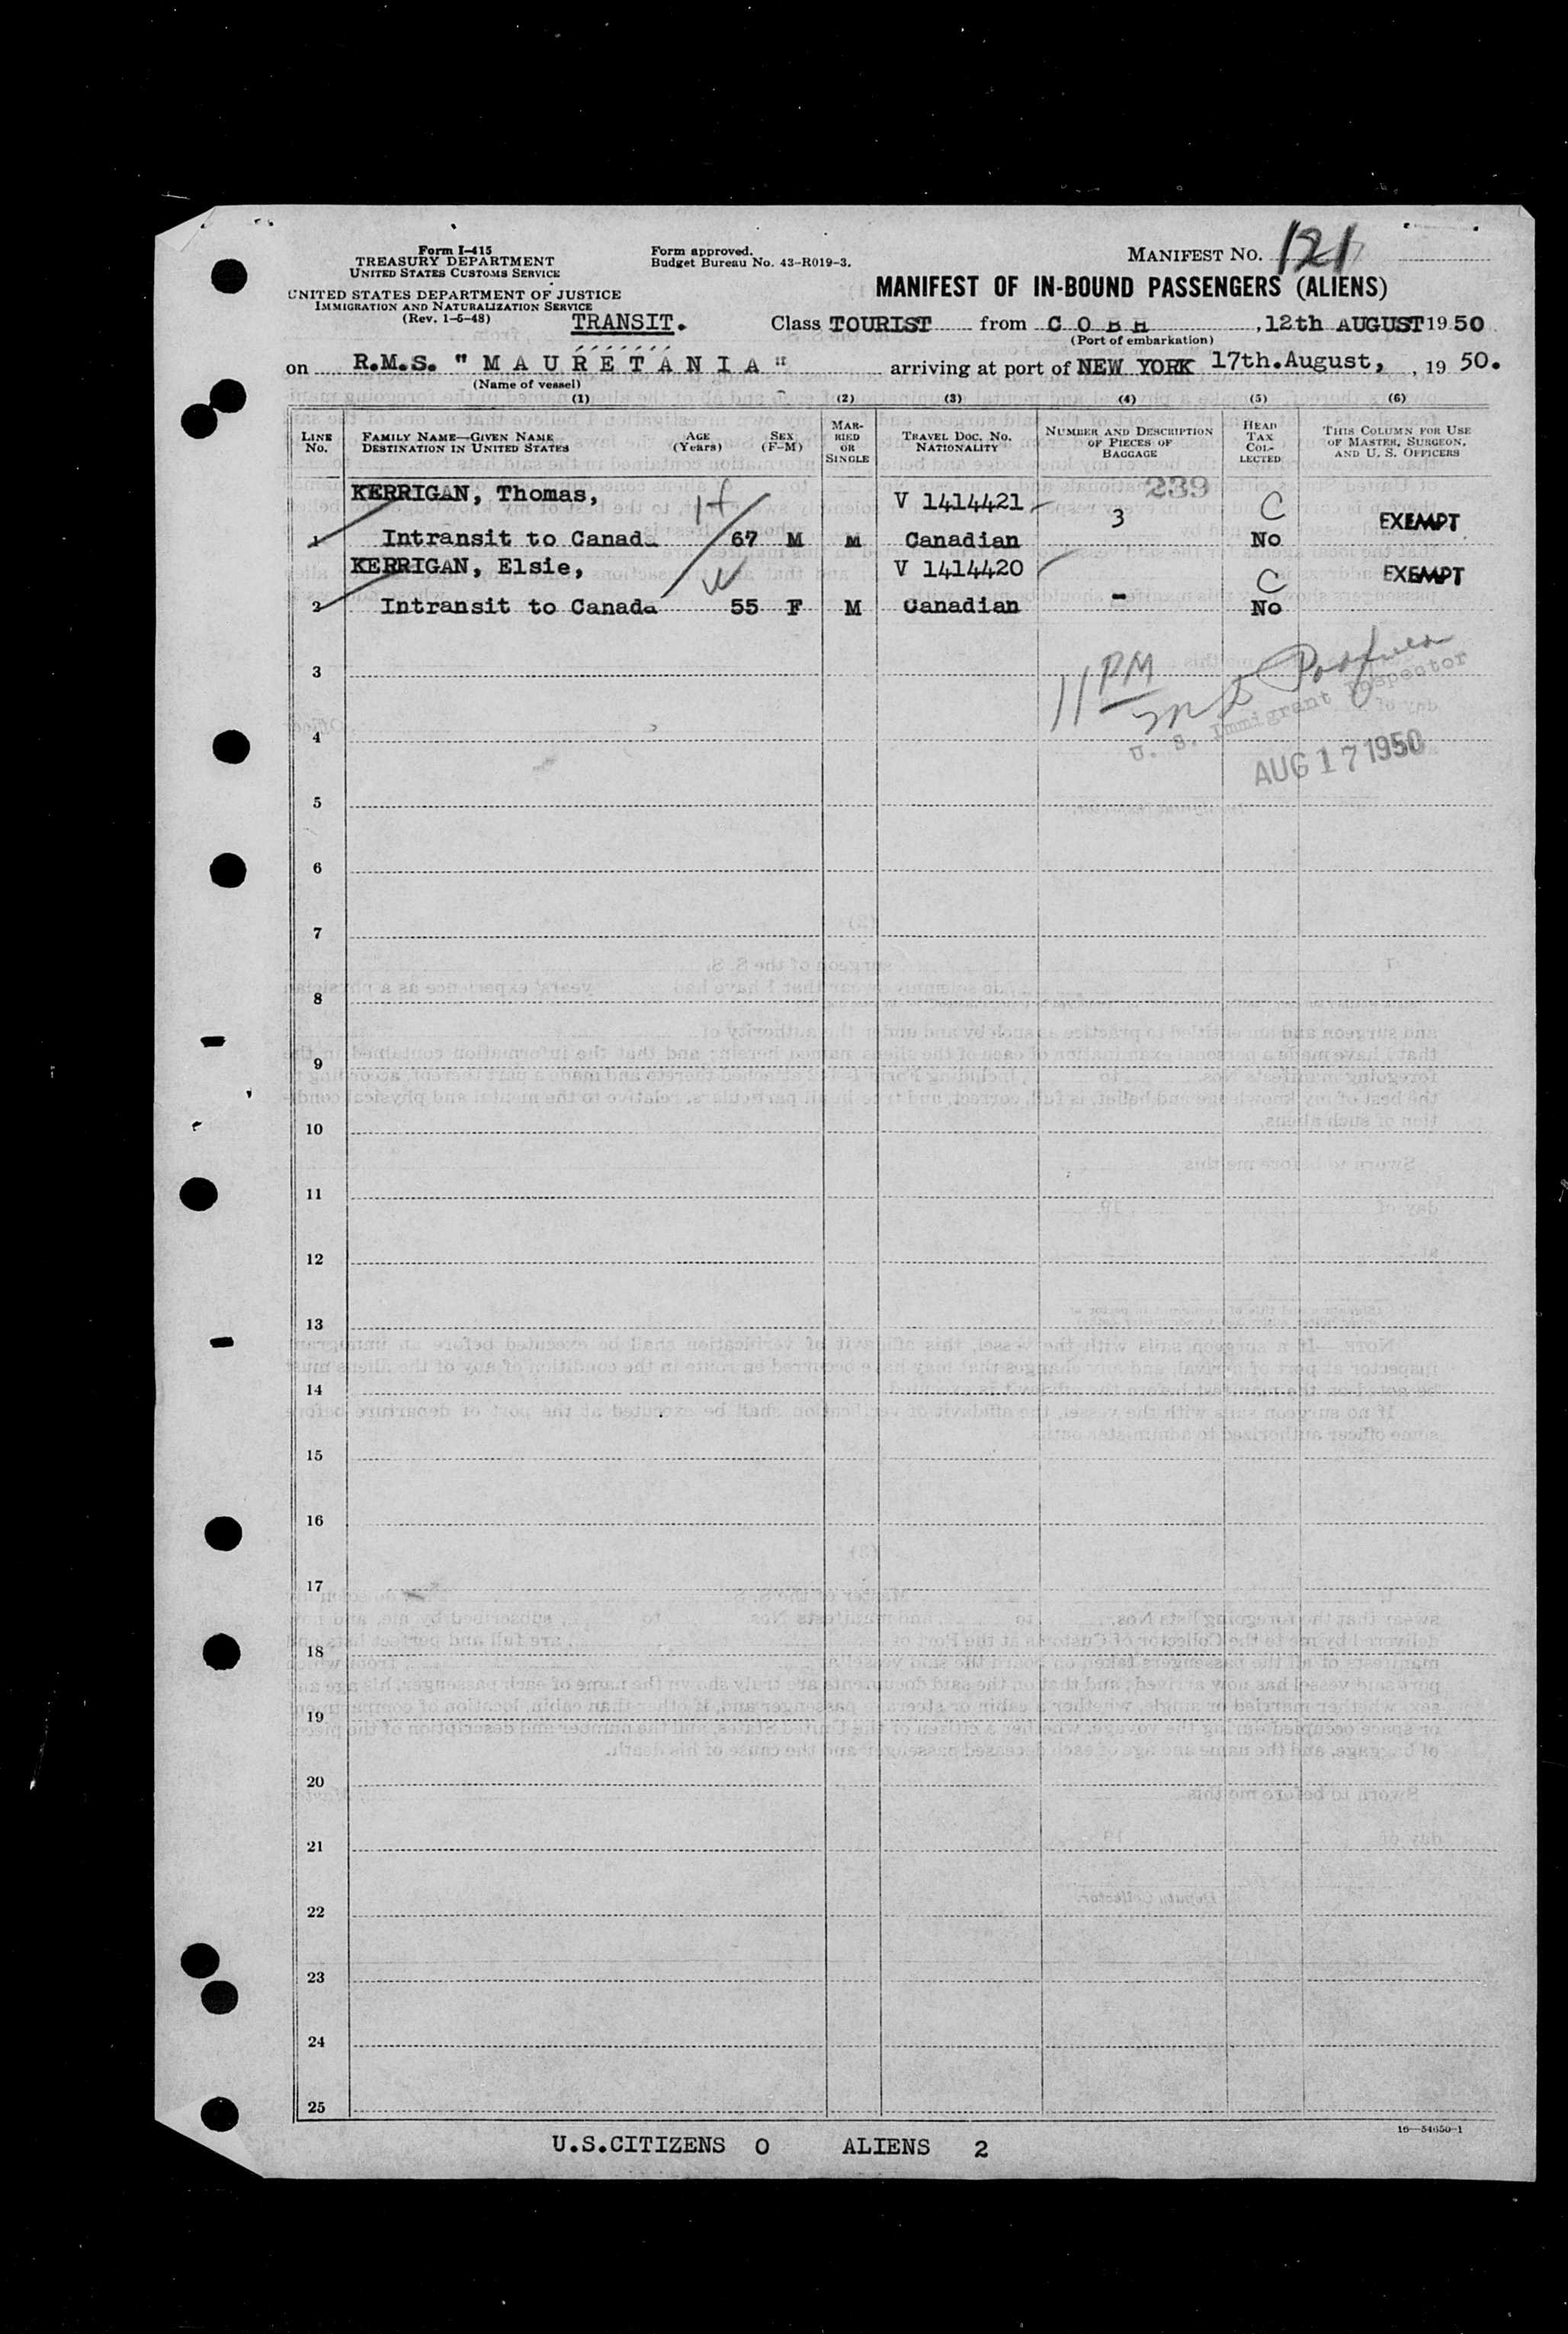 Form I-415
TREASURY DEPARTMENT
UNITED STATES CUSTOMS SERVICE
UNITED STATES DEPARTMENT OF JUSTICE
IMMIGRATION AND NATURALIZATION SERVICE
(Rev. 1-6-48)
Form approved.
Budget Bureau No. 43-R019-3.
MANIFEST NO. 121
MANIFEST OF IN-BOUND PASSENGERS (ALIENS)
TRANSIT. Class TOURIST from C O B H, 12th AUGUST 1950
(Port of embarkation)
on R.M.S. " M A U R E T A N I A " arriving at port of NEW YORK 17th.August, , 19 50.
(Name of vessel)
(1) (2) (3) (4) (5) (6)
LINE No. FAMILY NAME—GIVEN NAME DESTINATION IN UNITED STATES AGE (Years) SEX (F-M) MARRIED OR SINGLE TRAVEL DOC. NO. NATIONALITY NUMBER AND DESCRIPTION OF PIECES OF BAGGAGE HEAD TAX COLLECTED THIS COLUMN FOR USE OF MASTER, SURGEON, AND U. S. OFFICERS
239
KERRIGAN, Thomas, H V 1414421 3 C EXEMPT
1 Intransit to Canad 67 M M Canadian No
KERRIGAN, Elsie, W V 1414420 C EXEMPT
2 Intransit to Canada 55 F M Canadian - No
3
11 PM
U. S. Immigrant Inspector
4
AUG 17 1950
5
6
7
8
9
10
11
12
13
14
15
16
17
18
19
20
21
22
23
24
25
16—54650-1
U.S.CITIZENS 0 ALIENS 2